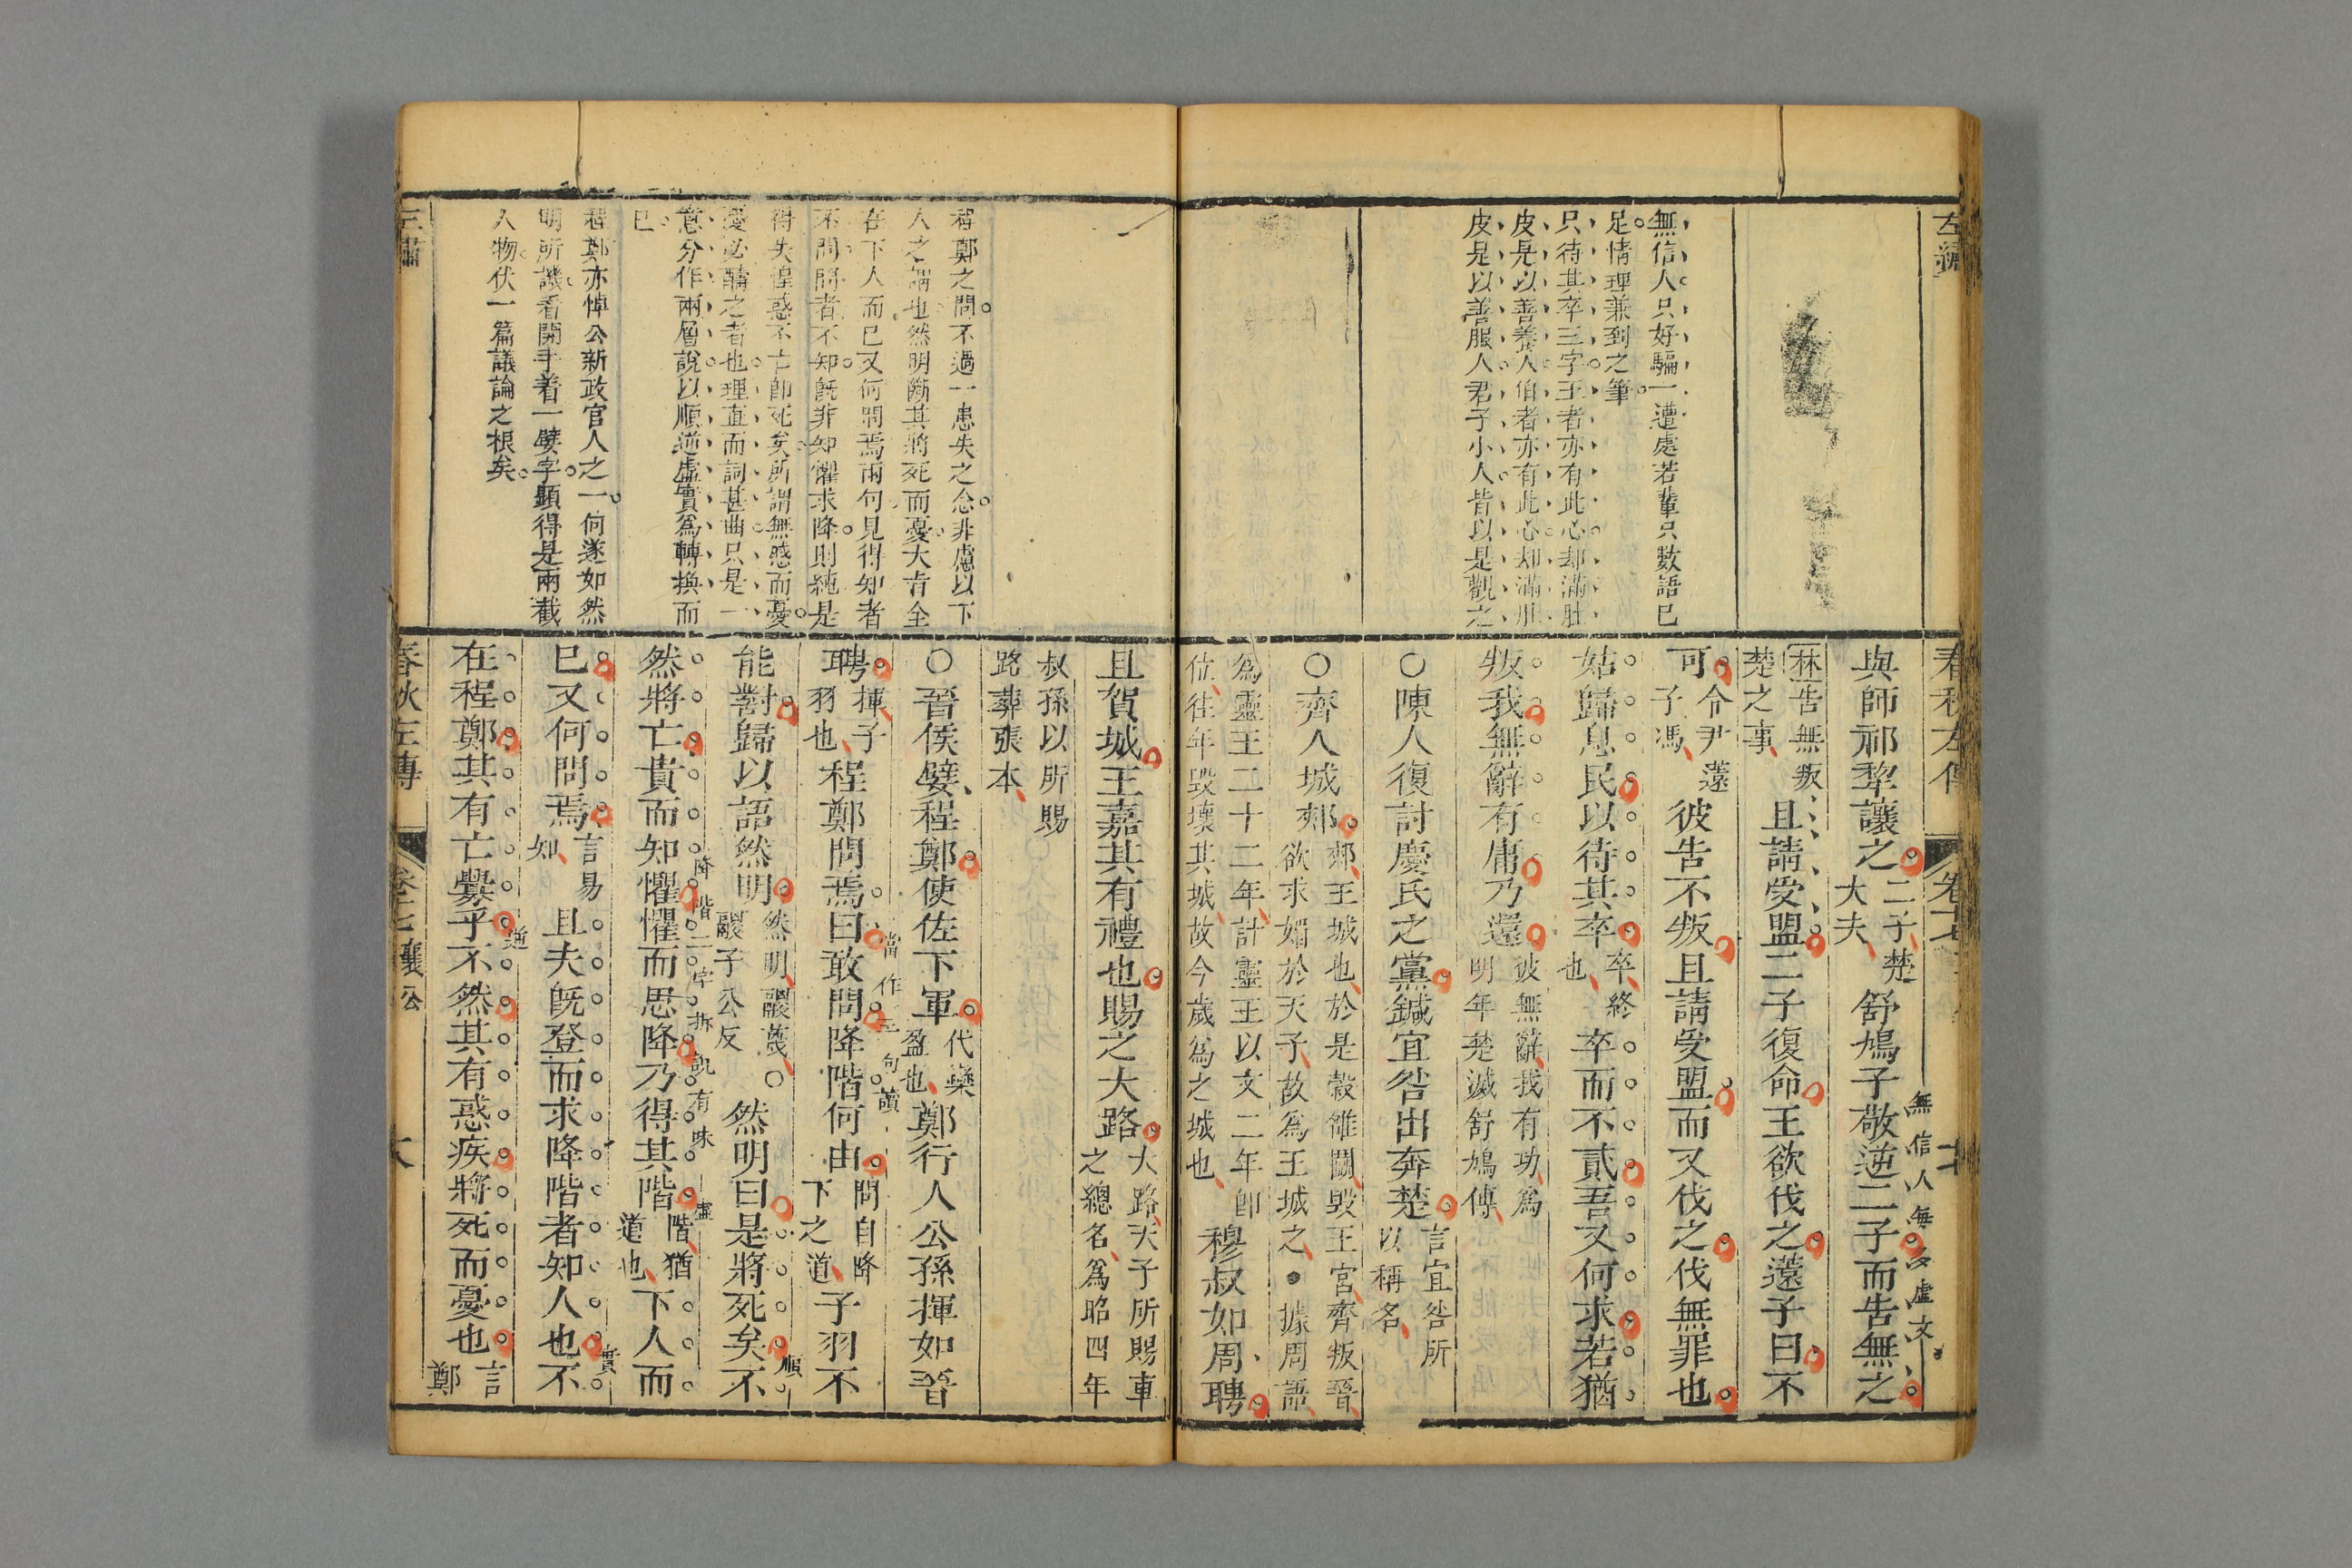 左繡
無信人只好騙一遭處若輩只數語已
足情理兼到之筆
只待其卒三字王者亦有此心却滿肚
皮是以善養人伯者亦有此心却滿肚
皮是以善服人君子小人皆以是觀之
春秋左傳 卷十七
與師祁犂讓之二子楚大夫舒鳩子敬逆二子而告無之
無信人每多虛文
林告無叛楚之事且請受盟二子復命王欲伐之薳子曰不
可令尹薳子馮彼告不叛且請受盟而又伐之伐無罪也
姑歸息民以待其卒卒終也卒而不貳吾又何求若猶
叛我無辭有庸乃還彼無辭我有功爲明年楚滅舒鳩傳
○陳人復討慶氏之黨鍼宜咎出奔楚言宜咎所以稱名
○齊人城郟郟王城也於是穀雒鬭毀王宮齊叛晉欲求媚於天子故爲王城之●據周語
爲靈王二十二年計靈王以文二年卽位往年毀壞其城故今歲爲之城也穆叔如周聘
程鄭之問不過一患失之念非慮以下
人之謂也然明斷其將死而憂大旨全
在下人而已又何問焉兩句見得知者
不問問者不知旣非知懼求降則純是
得失惶惑不亡卽死矣所謂無慼而憂
憂必讎之者也理直而詞甚曲只是一
意分作兩層說以順逆虛實爲轉換而
已
程鄭亦悼公新政官人之一何遂如然
明所譏看開手着一嬖字顯得是兩截
人物伏一篇議論之根矣
且賀城王嘉其有禮也賜之大路大路天子所賜車之總名爲昭四年
叔孫以所賜路葬張本
○晉侯嬖程鄭使佐下軍代欒盈也鄭行人公孫揮如晉
聘揮子羽也程鄭問焉曰敢問降階何由問自降下之道子羽不
當作三句讀
能對歸以語然明然明鬷蔑○鬷子公反然明曰是將死矣不
順
然將亡貴而知懼懼而思降乃得其階階猶道也下人而
降階二字拆說有味
虛
已又何問焉言易知且夫旣登而求降階者知人也不
實
在程鄭其有亡釁乎不然其有惑疾將死而憂也言鄭
逆
春秋左傳 襄公